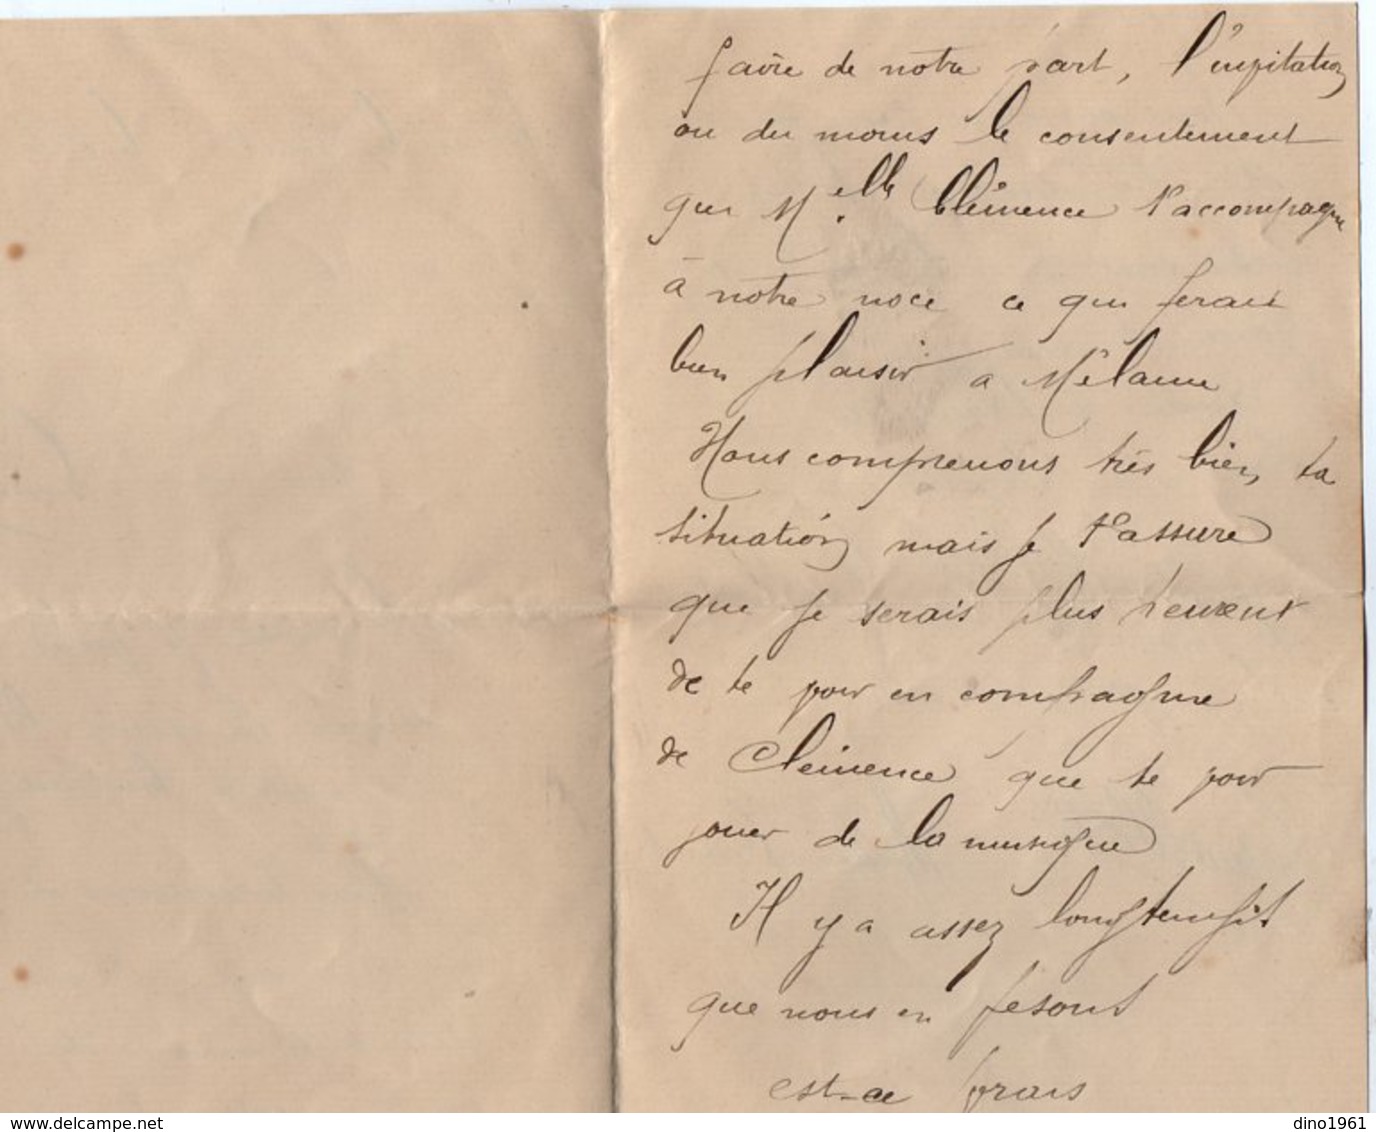 faire de notre part, l'invitation
ou du moins le consentement
que Melle Clémence t'accompagne
à notre noce ce qui ferait
bien plaisir a Mélanie
Nous comprenons très bien, ta
situation mais je t'assure
que je serais plus heureut
de te voir en compagnie
de Clémence que te voir
jouer de la musique
Il y a assez longtemps
que nous en fesont
est-ce vrais
dino1961